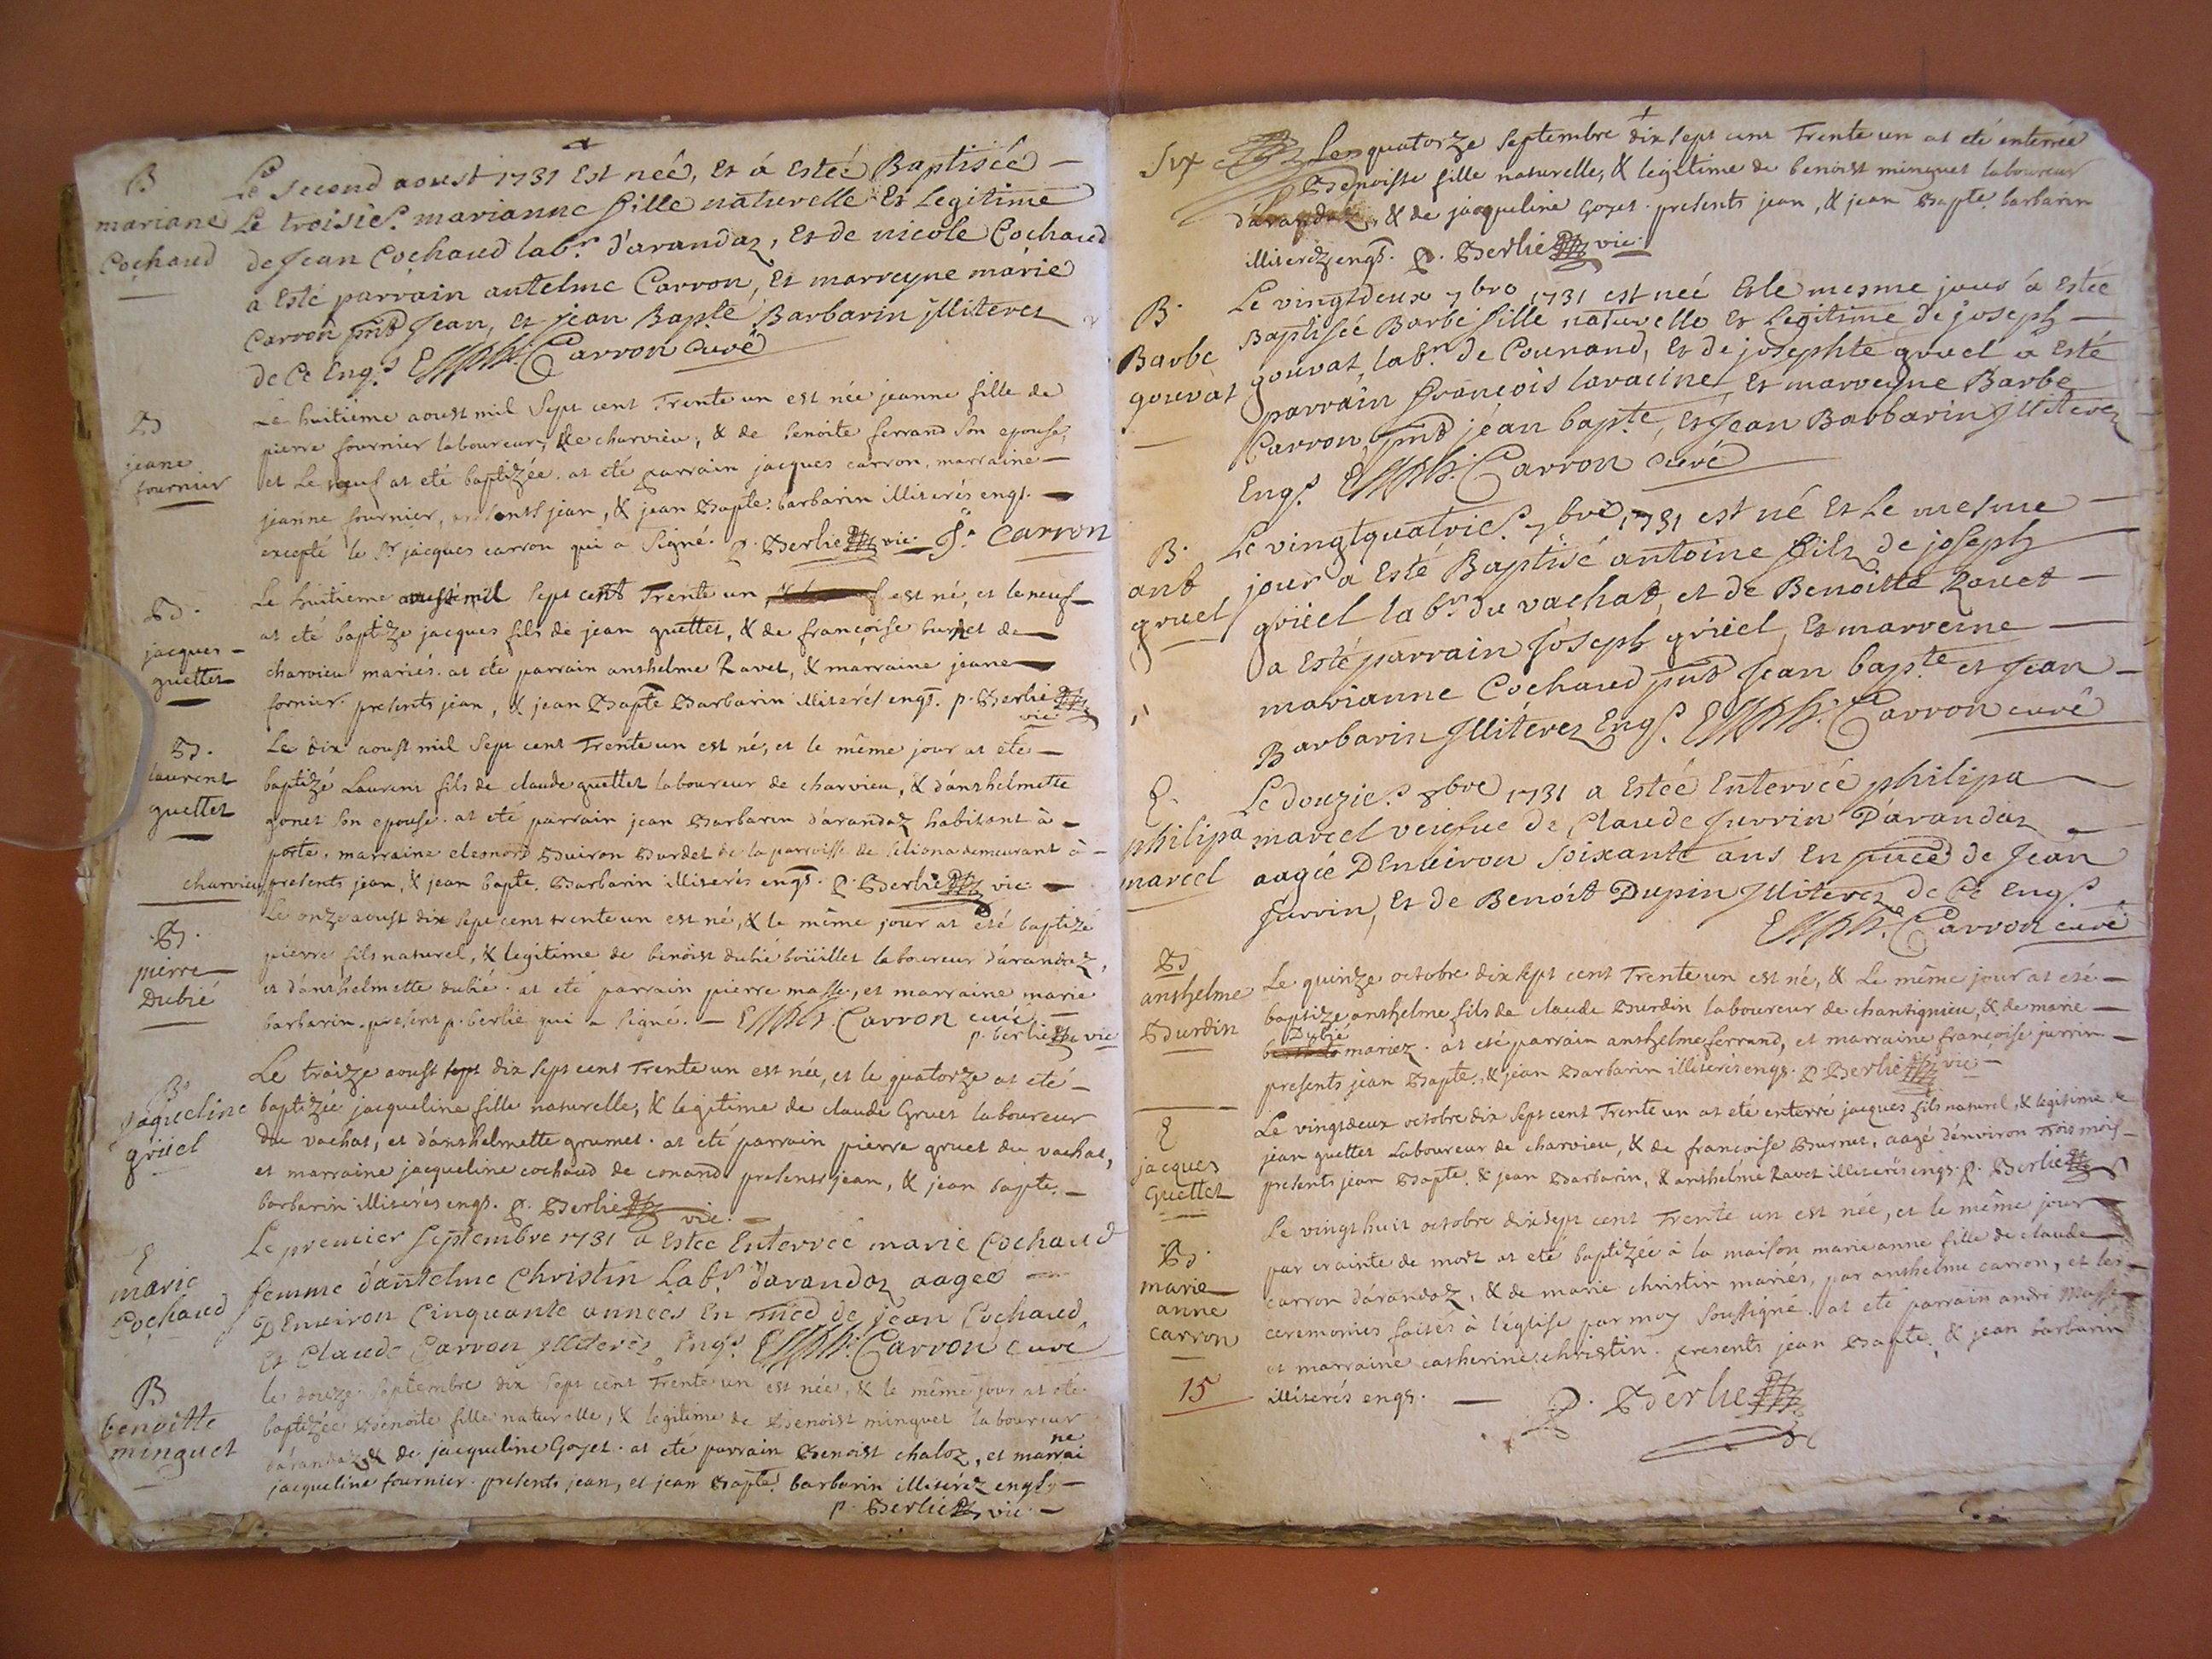 B
mariane
Cochaud
Le second aoust 1731 Est née, Et á Esteé Baptiséé
Le troisie.e marianne fille naturelle Et Legitime
de Jean Cochaud lab.r d'arandaz, Et de nicole Cochaud
a Esté parrain antelme Carron, Et marreyne marie
Carron pnts Jean, et Jean Bapte Barbarin jlliterez
de Ce Eng.s Carron curé
B
jeane
fournier
Le huitieme aoust mil Sept cent Trente un est née jeanne fille de
pierre fournier laboureur, de charvieu, & de benoite ferrand son epouse,
et Le neuf at eté baptizée. at eté parrain jacques carron, marraine
jeanne fournier, presents jean, & jean Bapte. barbarin illiterés engs.
excepté le Sr jacques carron qui a Signé. P. Berlie vic. J. Carron
B.
jacques
guettet
Le huitieme aoust mil Sept cent Trente un est né, et le neuf
at eté baptize jacques fils de jean guettet, & de françoise burnet de
charvieu mariés. at eté parrain anthelme Ravet, & marraine jeane
fornier. presents jean, & jean Bapte Barbarin illiterés engs. p. Berlie
vic
B.
laurent
guettet
Le dix aoust mil Sept cent Trente un est né, et le même jour at eté
baptizé Laurent fils de claude guettet laboureur de charvieu, & d'anthelmette
gonet Son epouse. at eté parrain jean Barbarin d'arandaz habitant à
porte, marraine eleonord Buiron Burdet de la parroisse de seliona demeurant à
charvieu, presents jean, & jean bapte. Barbarin illiterés engs. P. Berlie vic.
B.
pierre
Dubié
Le onze aoust dix Sept cent trente un est né, & le même jour at eté baptizé
pierre fils naturel, & legitime de benoist dubié boüillet laboureur d'arandaz,
et d'anthelmette dubié. at eté parrain pierre masse, et marraine marie
barbarin. present p. berlie qui a signé. — Carron curé
p. berlie vic
B
Jaqueline
grüel
Le traize aoust dix Sept cent Trente un est née, et le quatorze at eté
baptizée jacqueline fille naturelle, & legitime de claude Gruet laboureur
du vachat, et d'anthelmette grumet. at eté parrain pierre gruet du vachat,
et marraine jacqueline cochaud de conand presents jean, & jean bapte.
barbarin illiterés engs. P. Berlie vic.
E
marie
Cochaud
Le premier Septembre 1731 a Estee Enterreé marie Cochaud
femme d'antelme Christin Lab.r d'arandaz aageé
D'Environ Cinquante années En pnce de Jean Cochaud
Et Claude Carron jlliterés Eng.s Carron Curé
B
benoitte
minguet
le douze Septembre dix Sept cent Trente un est née, & le même jour at eté
baptizée Benoite fille naturelle, & legitime de Benoist minguet laboureur
d'arandaz & de jacqueline Goyet. at eté parrain Benoist chaloz, et marrai
ne
jacqueline fournier. presents jean, et jean Bapte. barbarin illiteréz engs
p. Berlie vic.
Le quatorze Septembre dix Sept cent Trente un at eté enterrée
Benoiste fille naturelle, & legitime de benoist minguet laboureur
d'arandaz, & de jacqueline Goyet. presents jean, & jean Bapte. barbarin
illiteréz engs. P. Berlie vic.
B.
Barbe
gouvat
Le vingtdeux 7bre 1731 est neé Et le mesme jour á Esteé
Baptiseé Barbe fille naturelle Et Legitime de joseph
gouvat, lab.r de Counand, Et de josephte gruel á Esté
parrain françois laracine, Et marreyne Barbe
Carron, pnts jéan bapte, Et Jean Barbarin jlliterez
Eng.s Carron curé
B.
ant
gruel
Le vingtquatrie.e 7bre 1731 est né Et Le mesme
jour a Esté Baptisé antoine fils de joseph
grüel lab.r du vachat, et de Benoitte Ravet
a Esté parrain Joseph grüel, Et marreine
marianne Cochaud pnts Jean bapte et Jean
Barbarin jlliterez Eng.s Carron curé
E.
philipa
marcel
Le douzie.e 8bre 1731 a Esteé Enterreé philipa
marcel veufue de Claude Jurrin D'arandaz
aagée D'Enuiron Soixante ans En pnce de Jean
Jurrin, Et de Benoit Dupin jlliterez de Ce Eng.s
Carron curé
B
anthelme
Burdin
Le quinze octobre dix Sept cent Trente un est né, & Le même jour at eté
baptize anthelme fils de claude Burdin laboureur de chantignieu, & de marie
Dubié
mariez. at eté parrain anthelme ferrand, et marraine françoise jurrin
presents jean Bapte. & jean Barbarin illiterés engs. P. Berlie vic
E
jacques
Guettet
Le vingtdeux octobre dix Sept cent Trente un at eté enterré jacques fils naturel, & legitime de
jean guettet Laboureur de charvieu, & de françoise Burnet, aagé d'environ Trois mois
presents jean Bapte. & jean Barbarin, & anthelme Ravet illiterés engs. P. Berlie
B.
marie
anne
carron
Le vingt huit octobre dix Sept cent Trente un est née, et le même jour
par crainte de mort at eté baptizée à la maison marie anne fille de claude
carron d'arandaz, & de marie christin mariés, par anthelme carron, et les
ceremonies faites à l'église par moy Soussigné. at eté parrain andré Masse
et marraine catherine christin. presents jean Bapte. & jean barbarin
illiterés engs. — P. Berlie
15